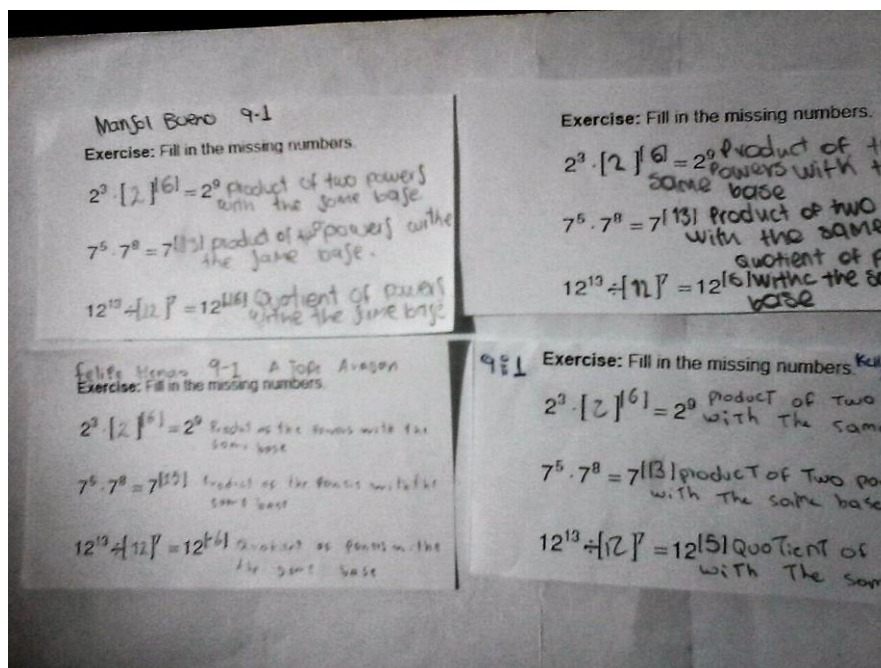 Marisol Bueno 9-1
Exercise: Fill in the missing numbers.
2³ · [2]^[6] = 2⁹ product of two powers
with the same base
7⁵ · 7⁸ = 7^[13] product of powers withe
the same base.
12¹³ ÷ [12]⁷ = 12^[6] Quotient of powers
withe the same base
Exercise: Fill in the missing numbers.
2³ · [2]^[6] = 2⁹ Product of
Powers with
same base
7⁵ · 7⁸ = 7^[13] Product of two
with the same
quotient of
12¹³ ÷ [12]⁷ = 12^[6] withc the
base
Felipe Henao 9-1 A Tope Aragon
Exercise: Fill in the missing numbers.
2³ · [2]^[6] = 2⁹ Product of the powers with the
same base
7⁵ · 7⁸ = 7^[13] Product of the with the
same base
12¹³ ÷ [12]⁷ = 12^[6] Quotient of powers the
the same base
9:1 Exercise: Fill in the missing numbers.
2³ · [2]^[6] = 2⁹ Product of Two
with The
7⁵ · 7⁸ = 7^[13] product of Two
with The same base
12¹³ ÷ [12]⁷ = 12^[5] QuoTient of
with The